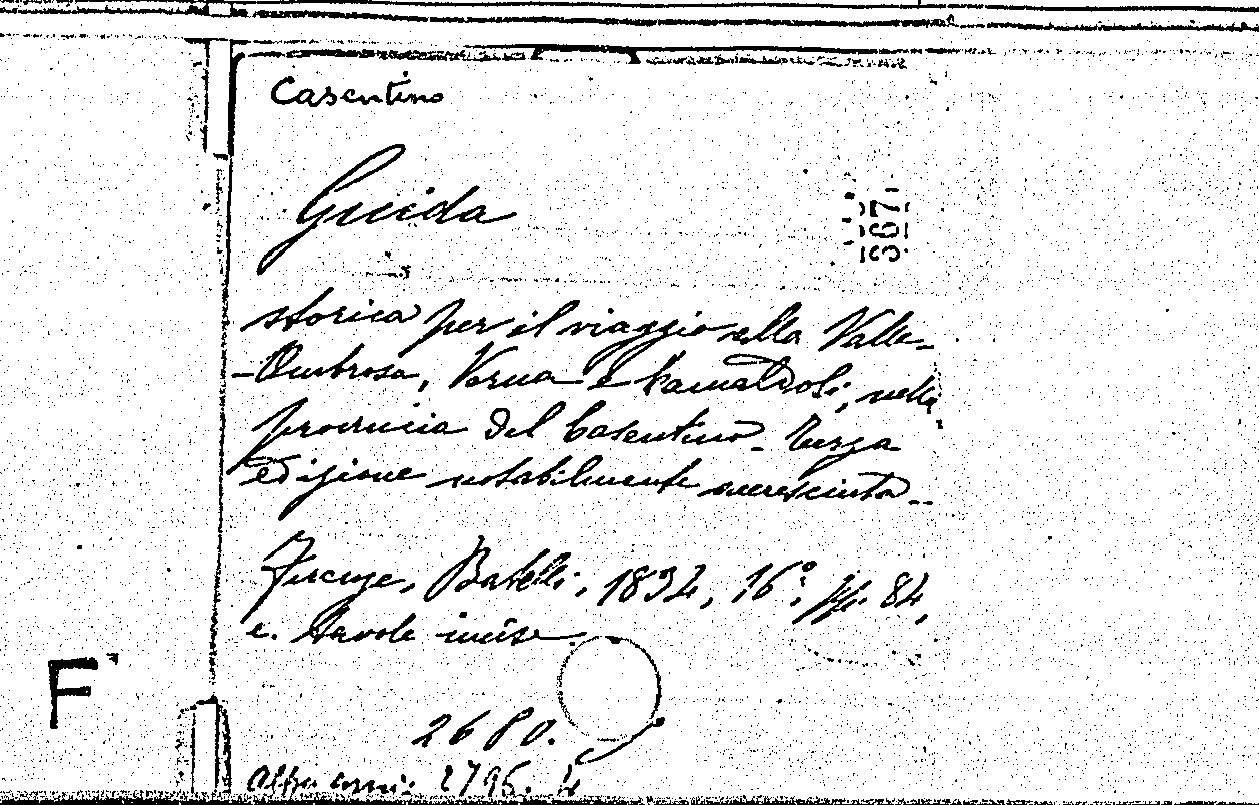 Casentino
Guida
367
storica per il viaggio alla Valle-
-Ombrosa, Verna e Camaldoli, nella
provincia del Casentino - Terza
edizione notabilmente accresciuta -
Firenze, Batelli, 1834, 16°, pp. 84,
c. tavole incise.
2680.
altra copia: 2795. 4
F